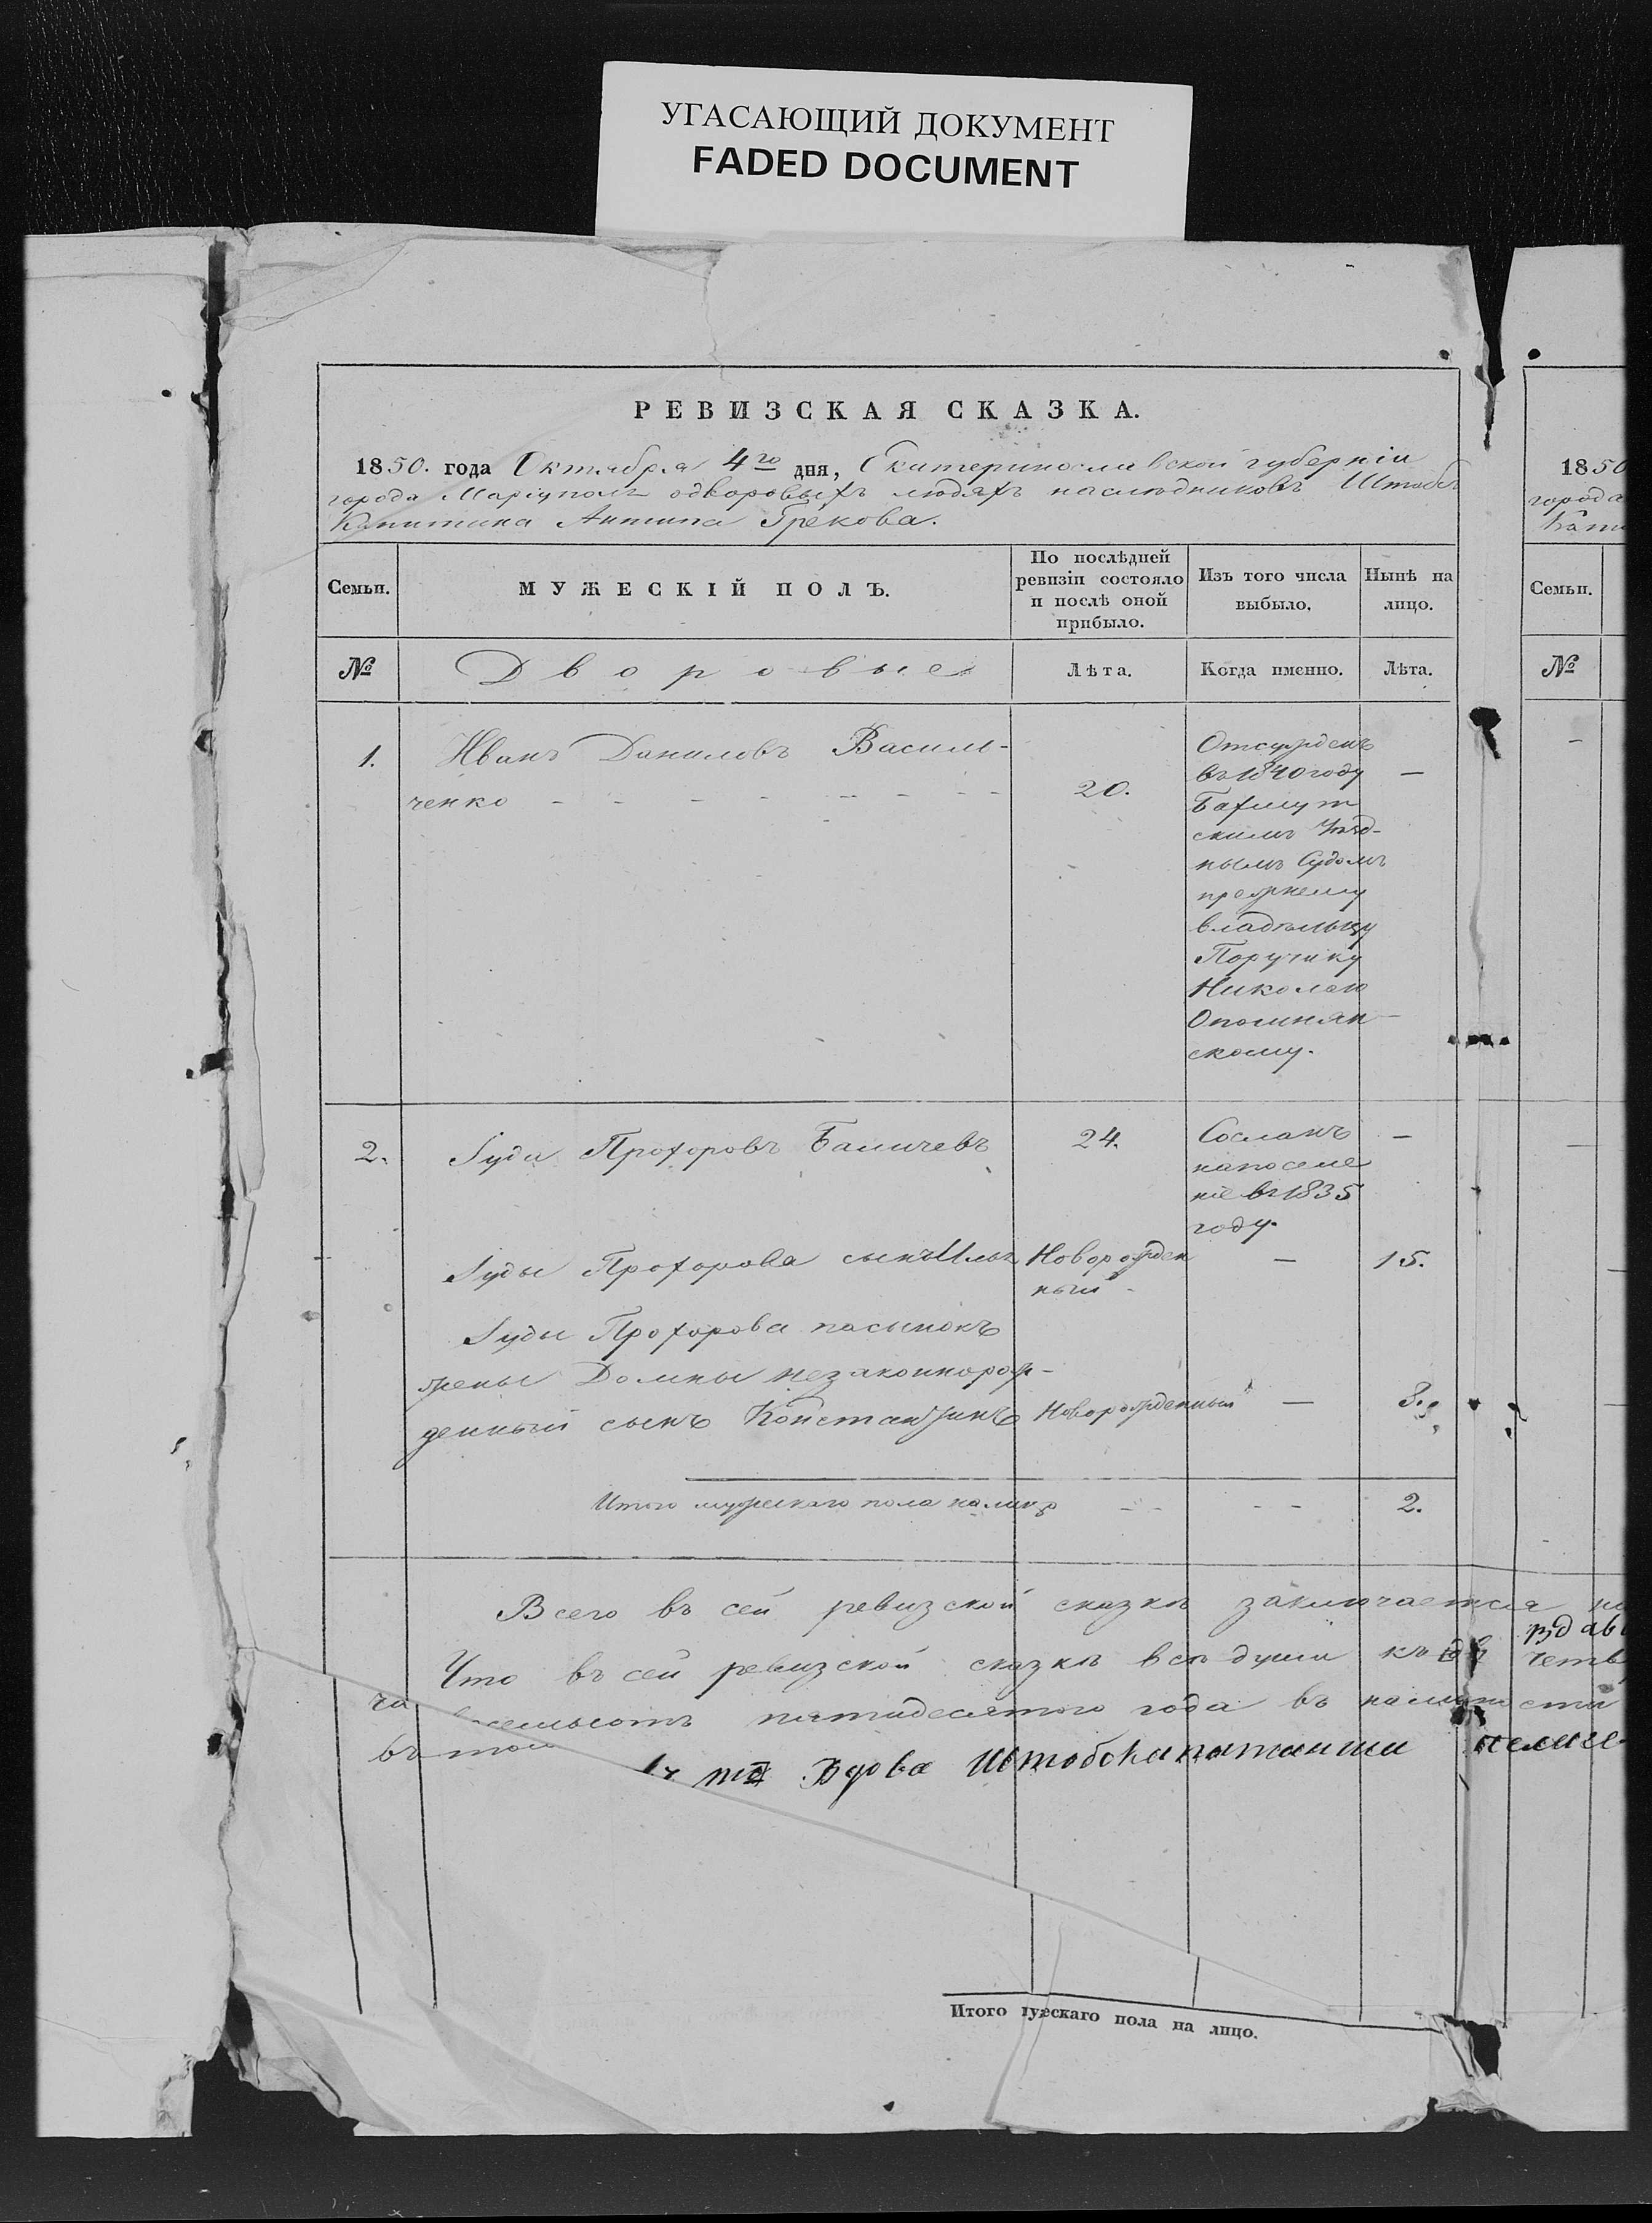 УГАСАЮЩИЙ ДОКУМЕНТ
FADED DOCUMENT
РЕВИЗСКАЯ СКАЗКА.
1850. года Октября 4го дня, Екатеринославской губерніи
города Маріуполя одворовыхъ людяхъ наслѣдниковъ Штабсъ
Капитана Антипа Грекова.
Семьи.
МУЖЕСКІЙ ПОЛЪ.
По послѣдней
ревизіи состояло
и послѣ оной
прибыло.
Изъ того числа
выбыло.
Нынѣ на
лицо.
№
Дворовые
Лѣта.
Когда именно.
Лѣта.
1.
Иванъ Даниловъ Василь-
ченко - - - - - - - -
20.
Отсужденъ
въ 1840 году
Бахмут
скимъ Уѣзд-
нымъ Судомъ
прежнему
владѣльцу
Поручику
Николаю
скому.
—
2.
Іуда Прохоровъ
24.
Сосланъ
напоселе
ніе въ 1835
году.
—
Іуды Прохорова сынъ Илья
Новорожден
ный -
—
15.
Іуды Прохорова пасынокъ
жены Домны незаконнорож-
денный сынъ Константинъ
Новорожденный
—
8.
Итого мужескаго пола налицо
- -
- -
2.
Всего въ сей ревизской сказкѣ заключается на
Что въ сей ревизской сказкѣ всѣ души къ
пятидесятого года въ
въ
Вдова Штабскапитанша
Итого мужескаго пола на лицо.
1850
города
Капи
Семьи.
№
—
—
—
—